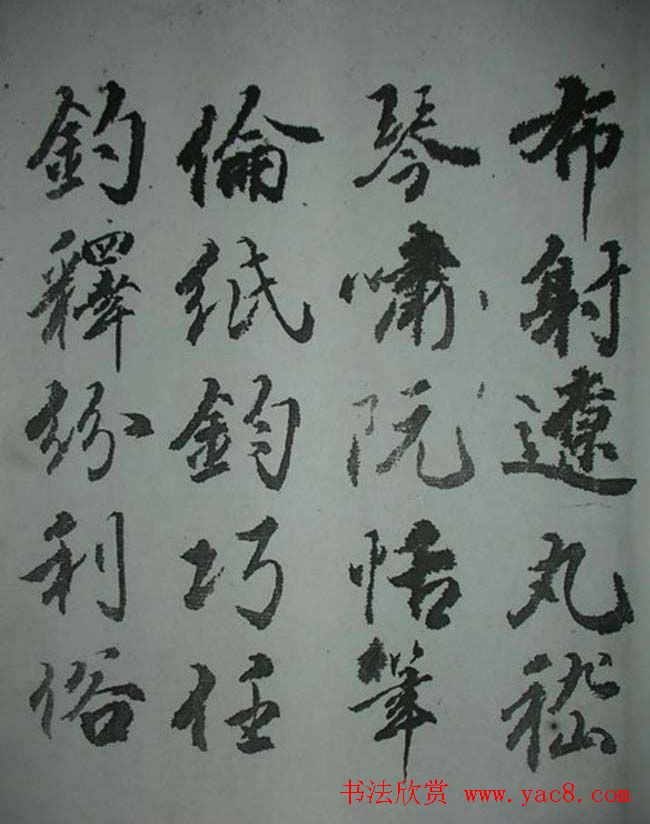 布射遼丸嵇
琴嘯阮恬筆
倫紙鈞巧任
釣釋紛利俗
书法欣赏 www.yac8.com